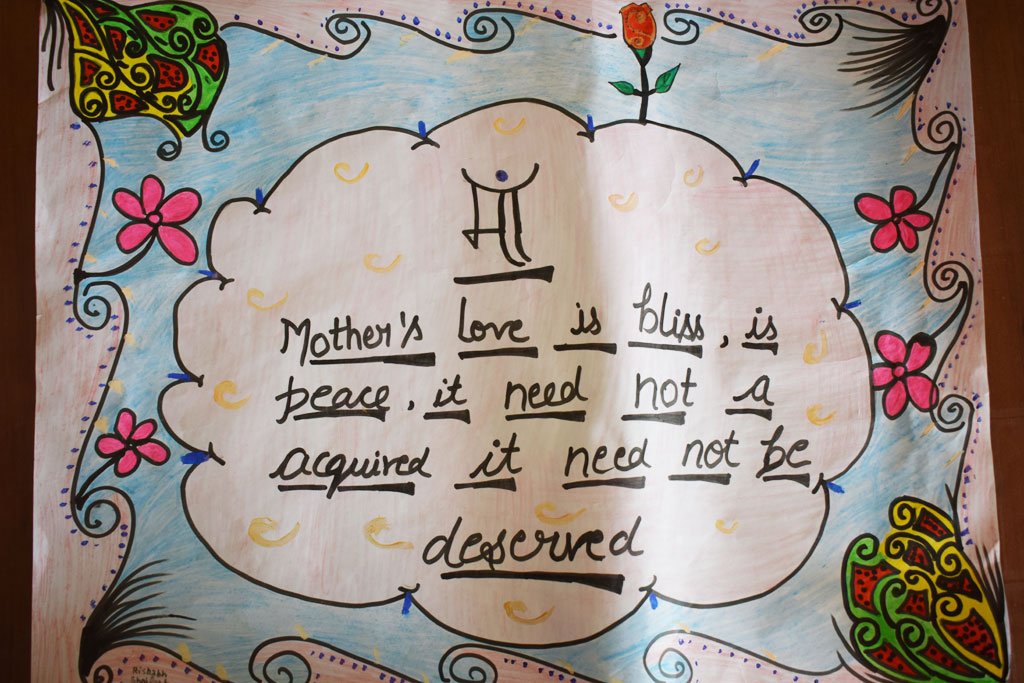 माँ
Mother's love is bliss, is
peace, it need not a
acquired it need not be,
deserved
Rishabh